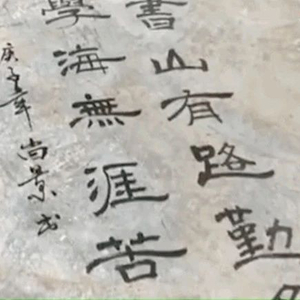 書山有路勤
學海無涯苦
庚子年尚景书